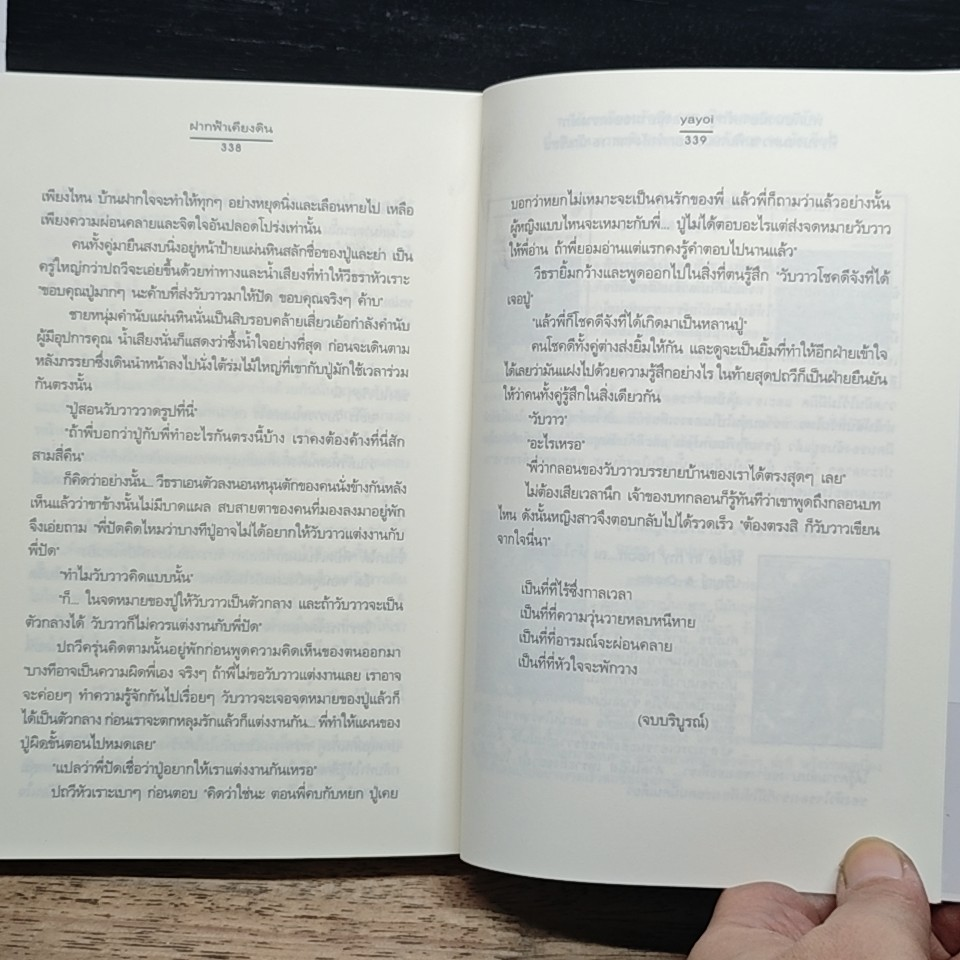 ฝากฟ้าเคียงดิน
338
เพียงไหน บ้านฝากใจจะทำให้ทุกๆ อย่างหยุดนิ่งและเลือนหายไป เหลือ
เพียงความผ่อนคลายและจิตใจอันปลอดโปร่งเท่านั้น
คนทั้งคู่มายืนสงบนิ่งอยู่หน้าป้ายแผ่นหินสลักชื่อของปู่และย่า เป็น
ครู่ใหญ่กว่าปถวีจะเอ่ยขึ้นด้วยท่าทางและน้ำเสียงที่ทำให้วีธราหัวเราะ
"ขอบคุณปู่มากๆ นะค้าบที่ส่งวับวาวมาให้ปัด ขอบคุณจริงๆ ค้าบ"
ชายหนุ่มคำนับแผ่นหินนั่นเป็นสิบรอบคล้ายเสี่ยวเอ้อกำลังคำนับ
ผู้มีอุปการคุณ น้ำเสียงนั่นก็แสดงว่าซึ้งน้ำใจอย่างที่สุด ก่อนจะเดินตาม
หลังภรรยาซึ่งเดินนำหน้าลงไปนั่งใต้ร่มไม้ใหญ่ที่เขากับปู่มักใช้เวลาร่วม
กันตรงนั้น
"ปู่สอนวับวาววาดรูปที่นี่"
"ถ้าพี่บอกว่าปู่กับพี่ทำอะไรกันตรงนี้บ้าง เราคงต้องค้างที่นี่สัก
สามสี่คืน"
ก็คิดว่าอย่างนั้น... วีธราเอนตัวลงนอนหนุนตักของคนนั่งข้างกันหลัง
เห็นแล้วว่าขาข้างนั้นไม่มีบาดแผล สบสายตาของคนที่มองลงมาอยู่พัก
จึงเอ่ยถาม "พี่ปัดคิดไหมว่าบางทีปู่อาจไม่ได้อยากให้วับวาวแต่งงานกับ
พี่ปัด"
"ทำไมวับวาวคิดแบบนั้น"
"ก็... ในจดหมายของปู่ให้วับวาวเป็นตัวกลาง และถ้าวับวาวจะเป็น
ตัวกลางได้ วับวาวก็ไม่ควรแต่งงานกับพี่ปัด"
ปถวีครุ่นคิดตามนั้นอยู่พักก่อนพูดความคิดเห็นของตนออกมา
"บางทีอาจเป็นความผิดพี่เอง จริงๆ ถ้าพี่ไม่ขอวับวาวแต่งงานเลย เราอาจ
จะค่อยๆ ทำความรู้จักกันไปเรื่อยๆ วับวาวจะเจอจดหมายของปู่แล้วก็
ได้เป็นตัวกลาง ก่อนเราจะตกหลุมรักแล้วก็แต่งงานกัน... พี่ทำให้แผนของ
ปู่ผิดขั้นตอนไปหมดเลย"
"แปลว่าพี่ปัดเชื่อว่าปู่อยากให้เราแต่งงานกันเหรอ"
ปถวีหัวเราะเบาๆ ก่อนตอบ "คิดว่าใช่นะ ตอนพี่คบกับหยก ปู่เคย
yayoi
339
บอกว่าหยกไม่เหมาะจะเป็นคนรักของพี่ แล้วพี่ก็ถามว่าแล้วอย่างนั้น
ผู้หญิงแบบไหนจะเหมาะกับพี่... ปู่ไม่ได้ตอบอะไรแต่ส่งจดหมายวับวาว
ให้พี่อ่าน ถ้าพี่ยอมอ่านแต่แรกคงรู้คำตอบไปนานแล้ว"
วีธรายิ้มกว้างและพูดออกไปในสิ่งที่ตนรู้สึก "วับวาวโชคดีจังที่ได้
เจอปู่"
"แล้วพี่ก็โชคดีจังที่ได้เกิดมาเป็นหลานปู่"
คนโชคดีทั้งคู่ต่างส่งยิ้มให้กัน และดูจะเป็นยิ้มที่ทำให้อีกฝ่ายเข้าใจ
ได้เลยว่ามันแฝงไปด้วยความรู้สึกอย่างไร ในท้ายสุดปถวีก็เป็นฝ่ายยืนยัน
ให้ว่าคนทั้งคู่รู้สึกในสิ่งเดียวกัน
"วับวาว"
"อะไรเหรอ"
"พี่ว่ากลอนของวับวาวบรรยายบ้านของเราได้ตรงสุดๆ เลย"
ไม่ต้องเสียเวลานึก เจ้าของบทกลอนก็รู้ทันทีว่าเขาพูดถึงกลอนบท
ไหน ดังนั้นหญิงสาวจึงตอบกลับไปได้รวดเร็ว "ต้องตรงสิ ก็วับวาวเขียน
จากใจนี่นา"
เป็นที่ที่ไร้ซึ่งกาลเวลา
เป็นที่ที่ความวุ่นวายหลบหนีหาย
เป็นที่ที่อารมณ์จะผ่อนคลาย
เป็นที่ที่หัวใจจะพักวาง
(จบบริบูรณ์)